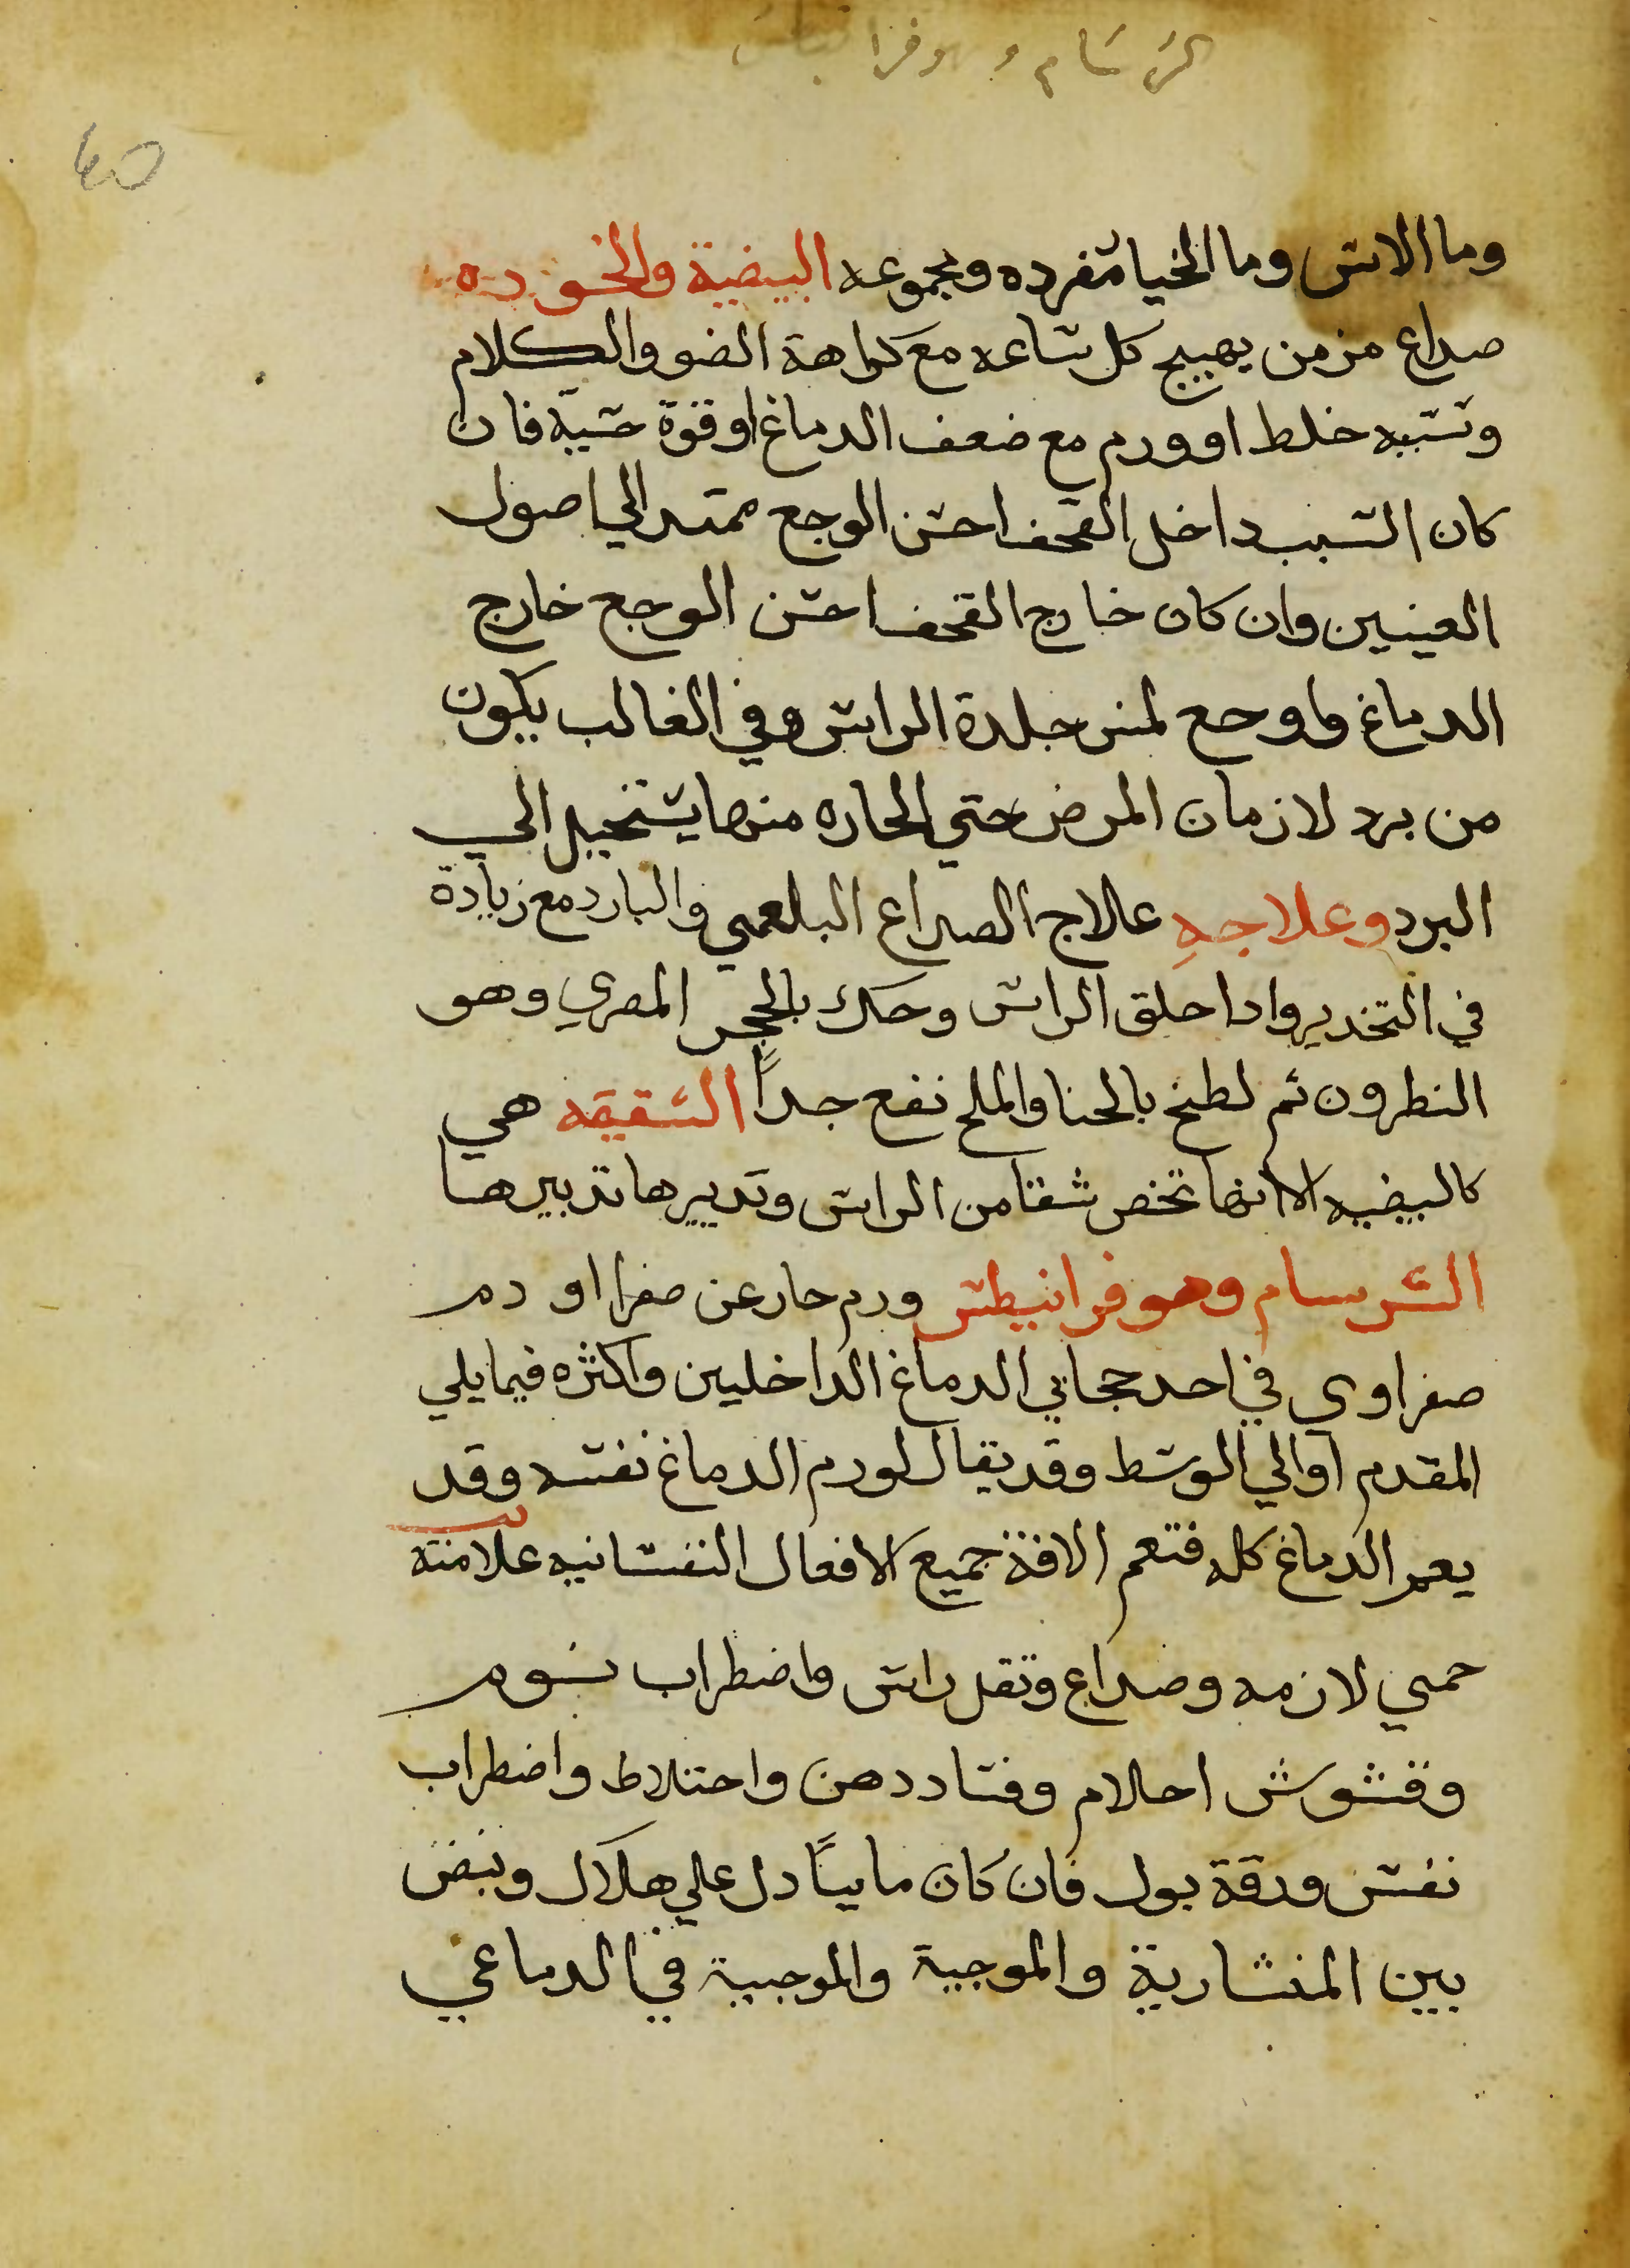 السرسام و وفرا
40
وما الاس وما الخيا مفرده ومجموعه البيضية والخوده
صداع مزمن يهيج كل ساعه مع كراهة الضو والكلام
وسببه خلط اوورم مع ضعف الدماغ اوقوة حسيه فان
كان السبب داخل القحف احس الوجع ممتد الي اصول
العينين وان كان خارج القحف احس الوجع خارج
الدماغ واوجع لمس جلدة الراس وفي الغالب يكون
من برد لازمان المرض حتي الحاره منها يستحيل الي
البرد وعلاجه علاج الصداع البلغمي والبارد مع زيادة
في التخدير واذا حلق الراس وحك بالحجر المصري وهو
النطرون ثم لطخ بالحنا والملح نفع جداً الشقيقه هي
كالبيضيه الا انها تخص شقا من الراس وتدبيرها تدبيرها
السرسام وهو فرانيطس ورم حار عن صفرا او دم
صفراوي في احد حجابي الدماغ الداخليين واكثره فيما يلي
المقدم اوالي الوسط وقد يقال لورم الدماغ نفسه وقد
يعم الدماغ كله فتعم الافة جميع الافعال النفسانيه علامته
حمي لازمه وصداع وثقل راس واضطراب نوم
وتشوش احلام وفساد دهن واختلاط واضطراب
نفس ورقة بول فان كان ماييًا دل علي هلاك ونبض
بين المنشارية والموجية والموجيية في الدماغي